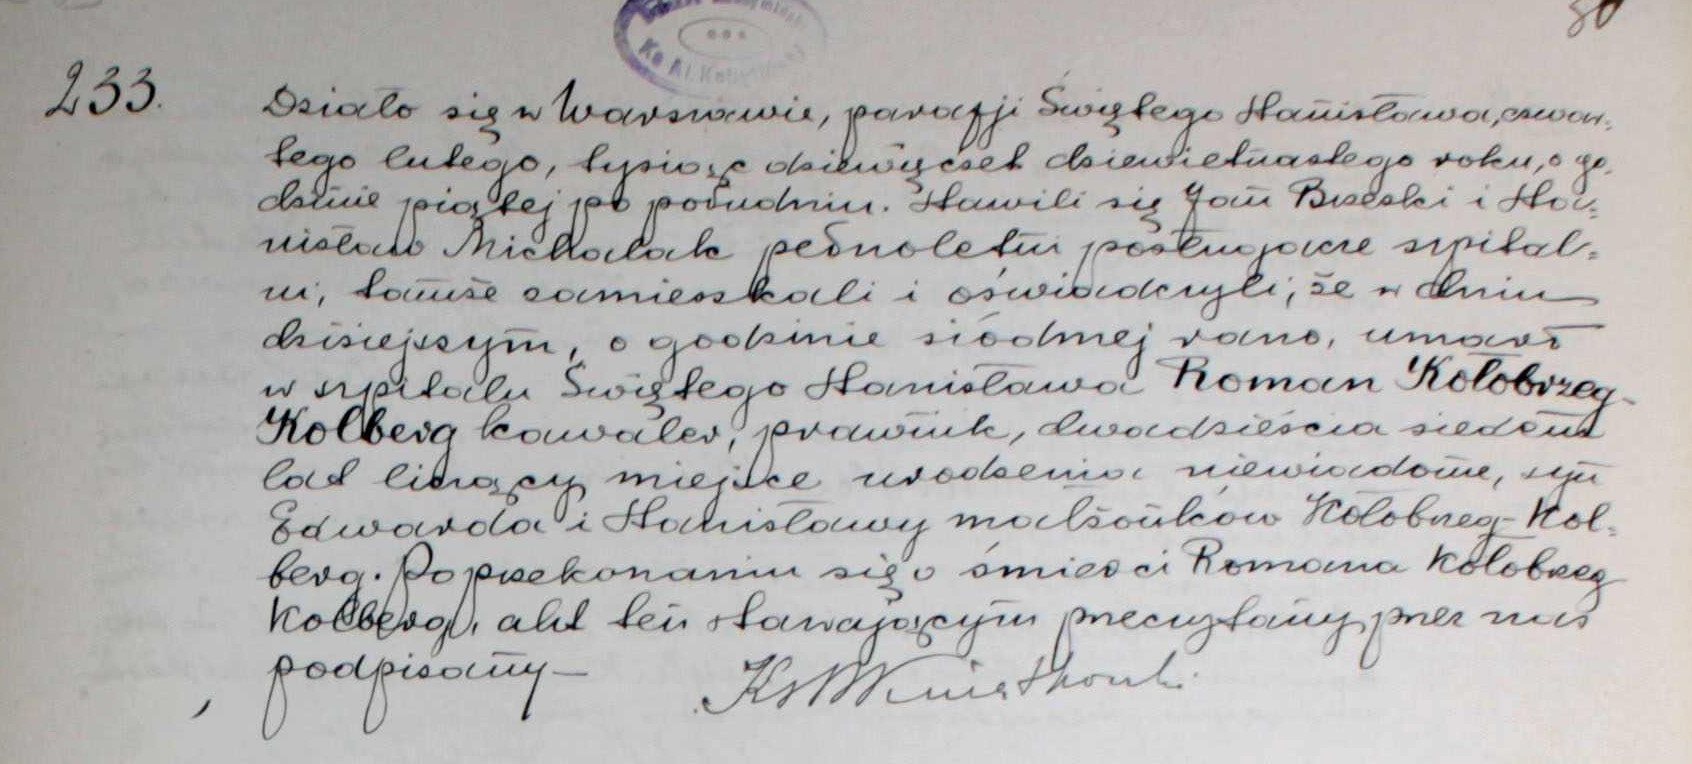 80
233.
Działo się w Warszawie, parafji Świętego Stanisława, czwar-
tego lutego, tysiąc dziewięćset dziewietnastego roku, o go-
dzinie piątej po południu. Stawili się Jan Brzeski i Sta-
nisław Michalak pełnoletni posługujące szpital-
ni, tamże zamieszkali i oświadczyli, że w dniu
dzisiejszym, o godzinie siódmej rano, umarł
w szpitalu Świętego Stanisława Roman Kołobrzeg-
Kolberg kawaler, prawnik, dwadzieścia siedem
lat liczący miejsce urodzenia niewiadome, syn
Edwarda i Stanisławy małżonków Kołobrzeg-Kol-
berg. Po przekonaniu się o śmierci Romana Kołobrzeg
Kolberg, akt ten stawającym przeczytany, przez nas
podpisany —